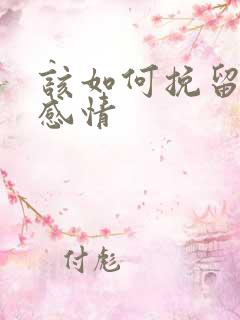 该如何挽留
感情
付彪